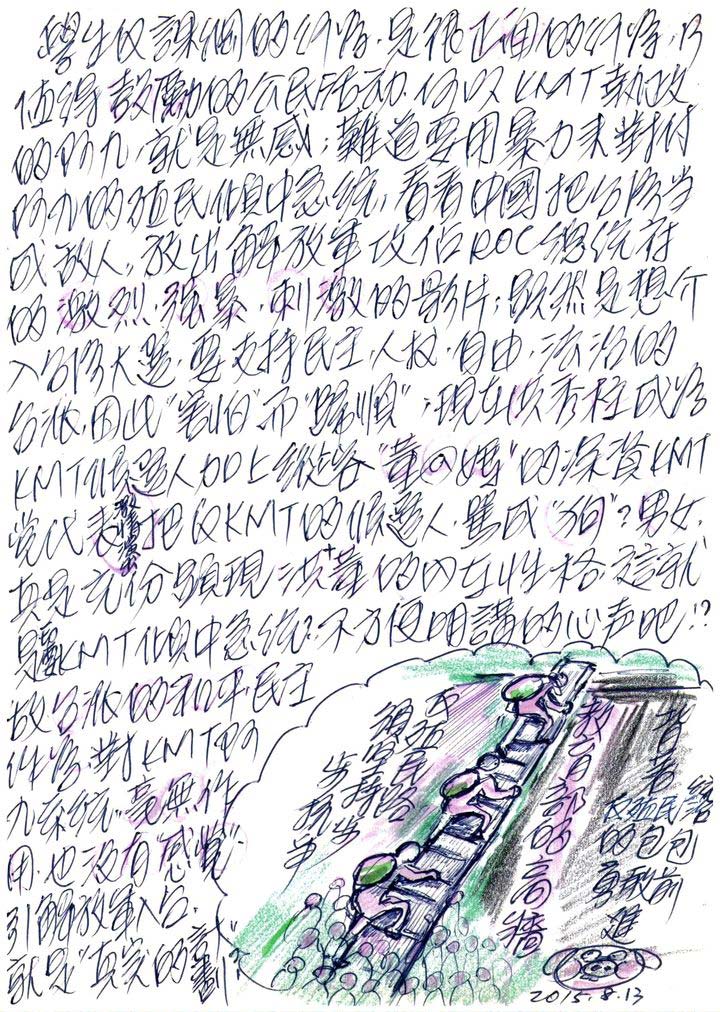 學生反課綱的行為,是很正面的行為,乃
值得鼓勵的公民活动.何以KMT執政
的阿九,就是無感;難道要用暴力來對付
阿九的殖民傾中急統,看看中國把台湾当
成敌人,放出解放軍攻佔ROC總統府
的激烈.強暴.刺激的影片;顯然是想介
入台湾大選.要支持民主.人权.自由.法治的
台派.因此"害怕"而"歸順";現在洪秀柱成為
KMT候選人加上縱容"華回媽"的深資KMT
党代表把反KMT的候選人.罵成"狗"?男女,
真是充份顯現洪+華的內在性格.這就
是KMT傾中急統?不方便明講的心声吧!?
故台派的和平.民主
作為.對KMT阿
九系統.毫無作
用.也沒有"感覚".
引解放軍入台.
就是"真实"的計劃?
教育部的高牆
背著
大殖民
的包包
勇敢前
進
2015.8.13